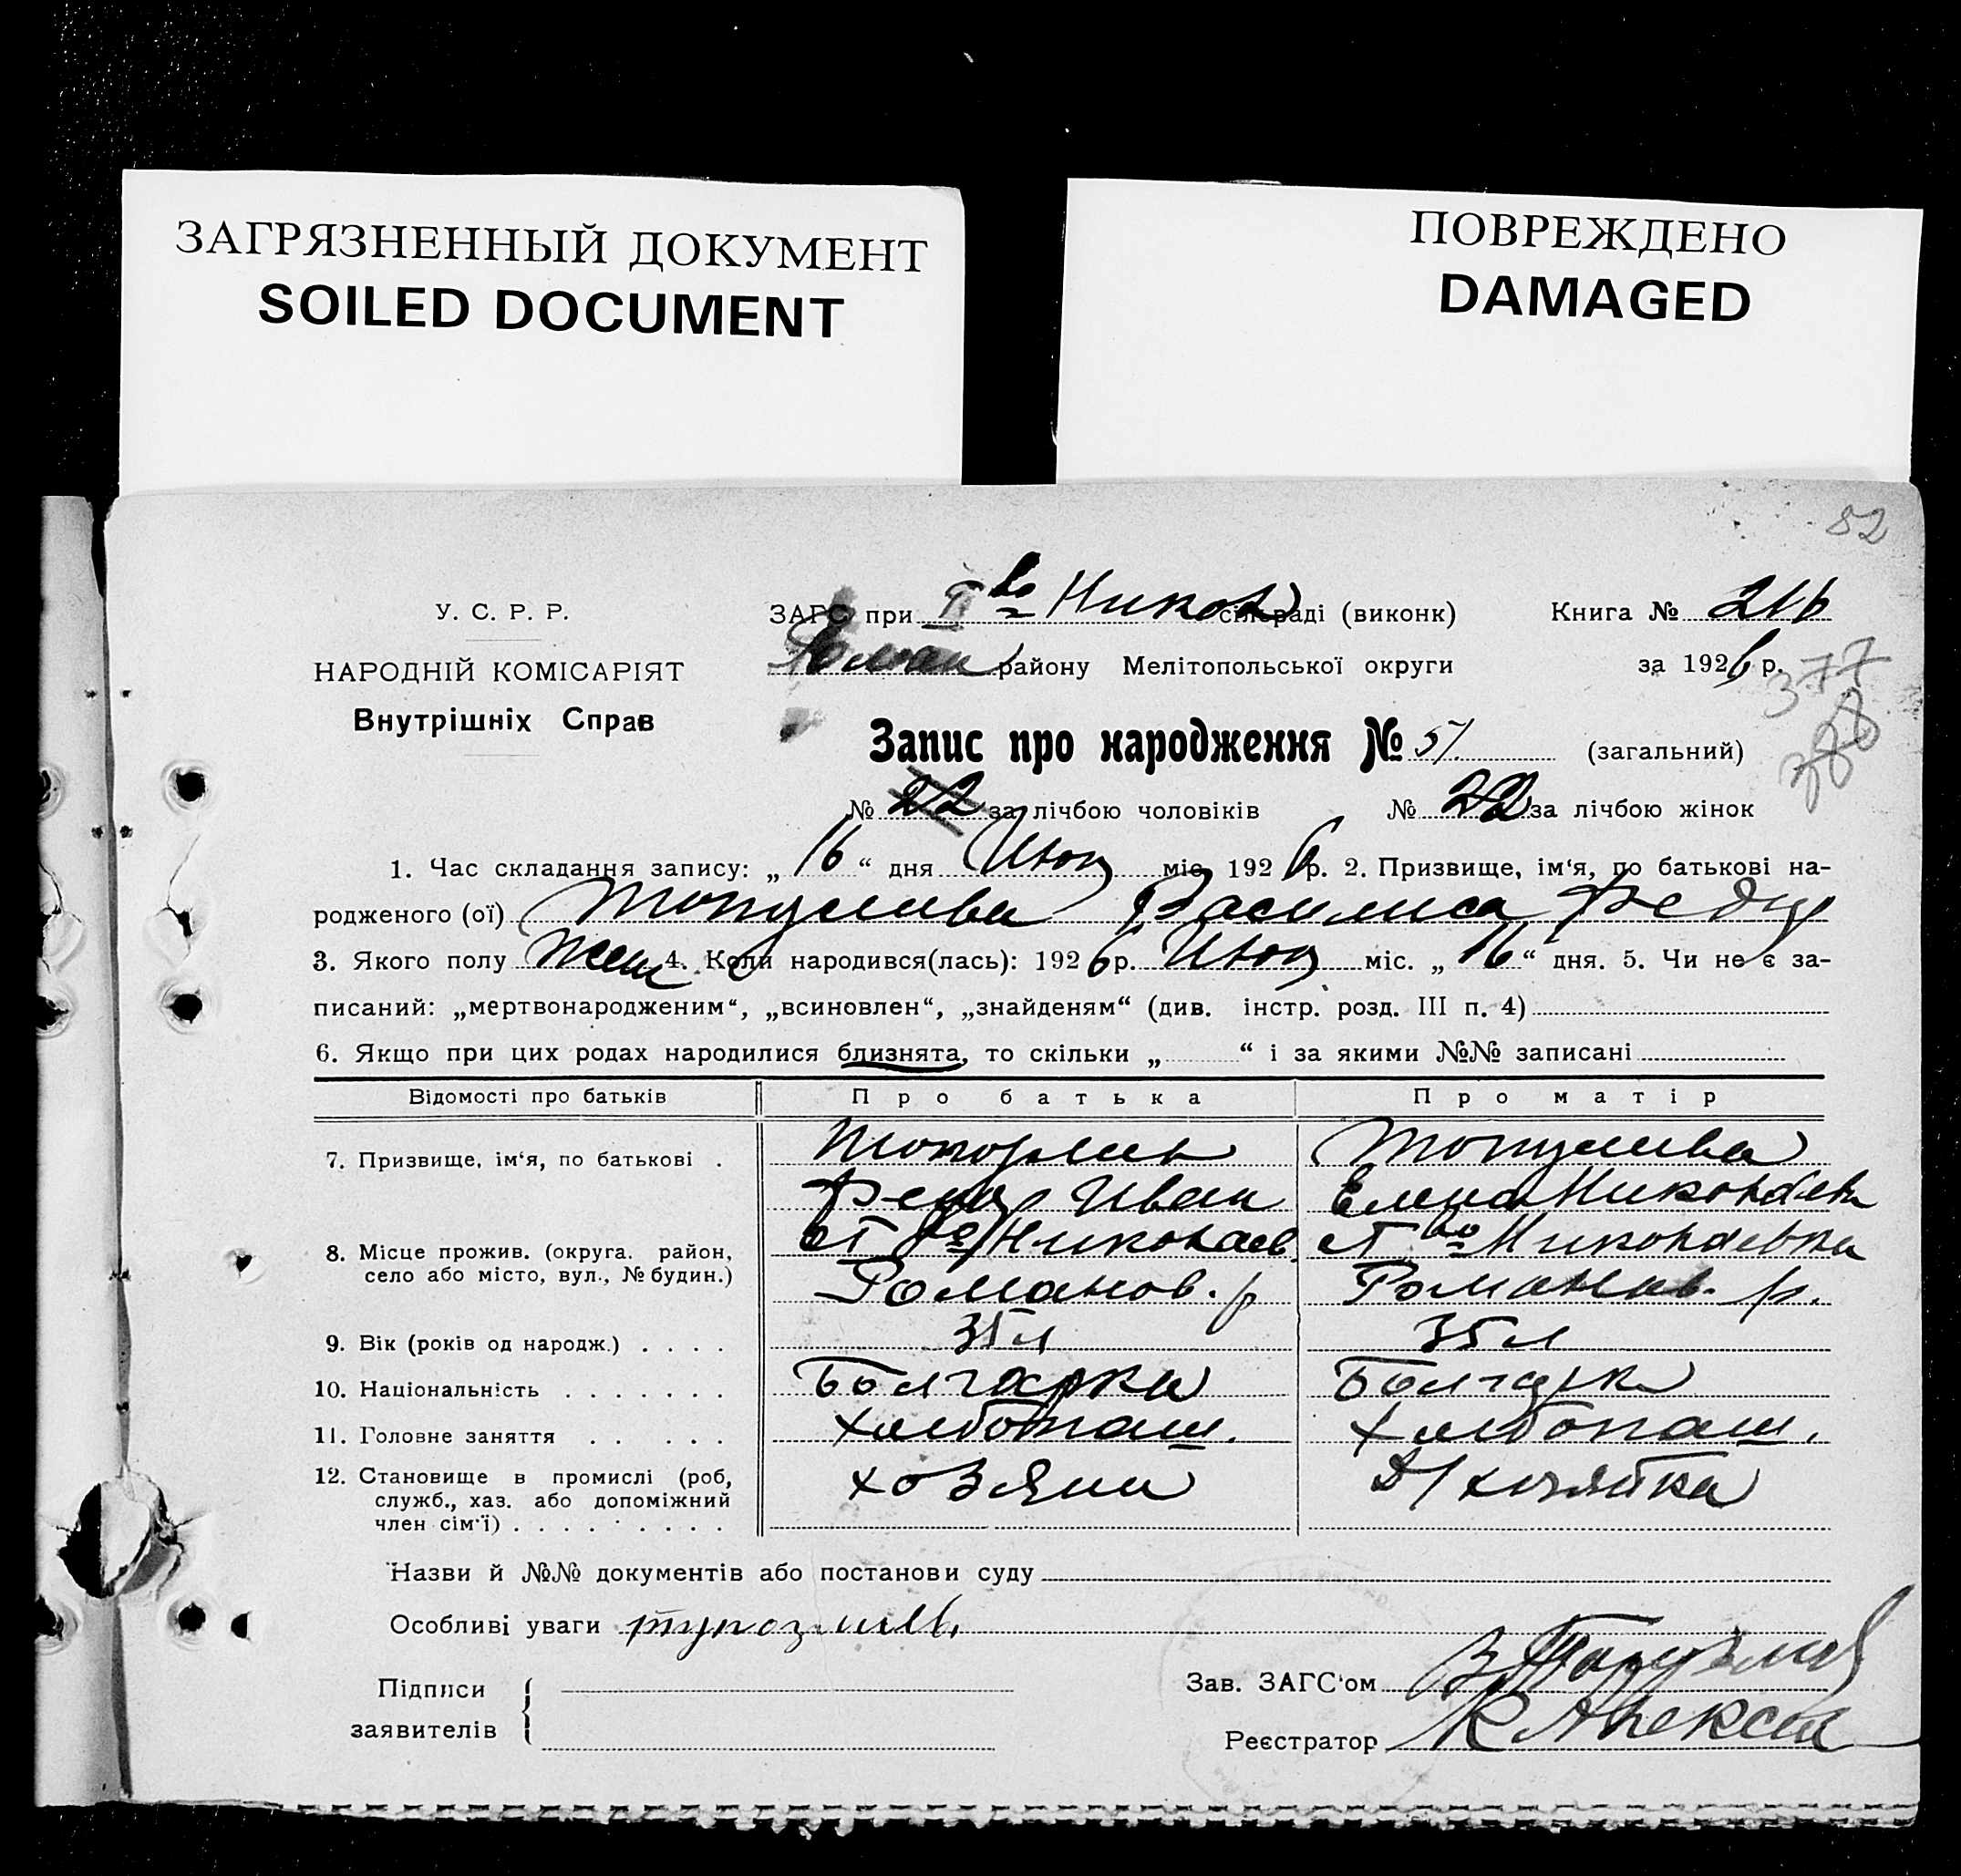 ЗАГРЯЗНЕННЫЙ ДОКУМЕНТ
SOILED DOCUMENT
ПОВРЕЖДЕНО
DAMAGED
82
У. С. Р. Р.
НАРОДНІЙ КОМІСАРІЯТ
Внутрішніх Справ
ЗАГС при сільраді (виконк)
району Мелітопольської округи
Книга № 216
за 1926 р.
377
388
Запис про народження № 51. (загальний)
№ 22 за лічбою чоловіків № 22 за лічбою жінок
1. Час складання запису: „ 16 “ дня Июн міс. 1926 р. 2. Призвище, ім‘я, по батькові на-
родженого (ої) Василиса
3. Якого полу Жен 4. Коли народився(лась): 1926 р. Июн міс. „ 16 “ дня. 5. Чи не є за-
писаний: „мертвонародженим“, „всиновлен“, „знайденям“ (див. інстр. розд. III п. 4)
6. Якщо при цих родах народилися близнята, то скільки „ “ і за якими №№ записані
Відомості про батьків Про батька Про матір
7. Призвище, ім‘я, по батькові .
Иван Елена
8. Місце прожив. (округа. район,
село або місто, вул., № будин.)
Николаев. Николаевка
Романов. р Романов. р.
9. Вік (років од народж.) . . . . 35 л 35 л
10. Національність . . . . . . . Болгарка
11. Головне заняття . . . . . хлебопаш. хлебопаш.
12. Становище в промислі (роб,
служб., хаз. або допоміжний
член сім‘ї) . . . . . . . . .
хозяин Д/хозяйка
Назви й №№ документів або постанови суду
Особливі уваги
Підписи
заявителів
Зав. ЗАГС‘ом
Реєстратор